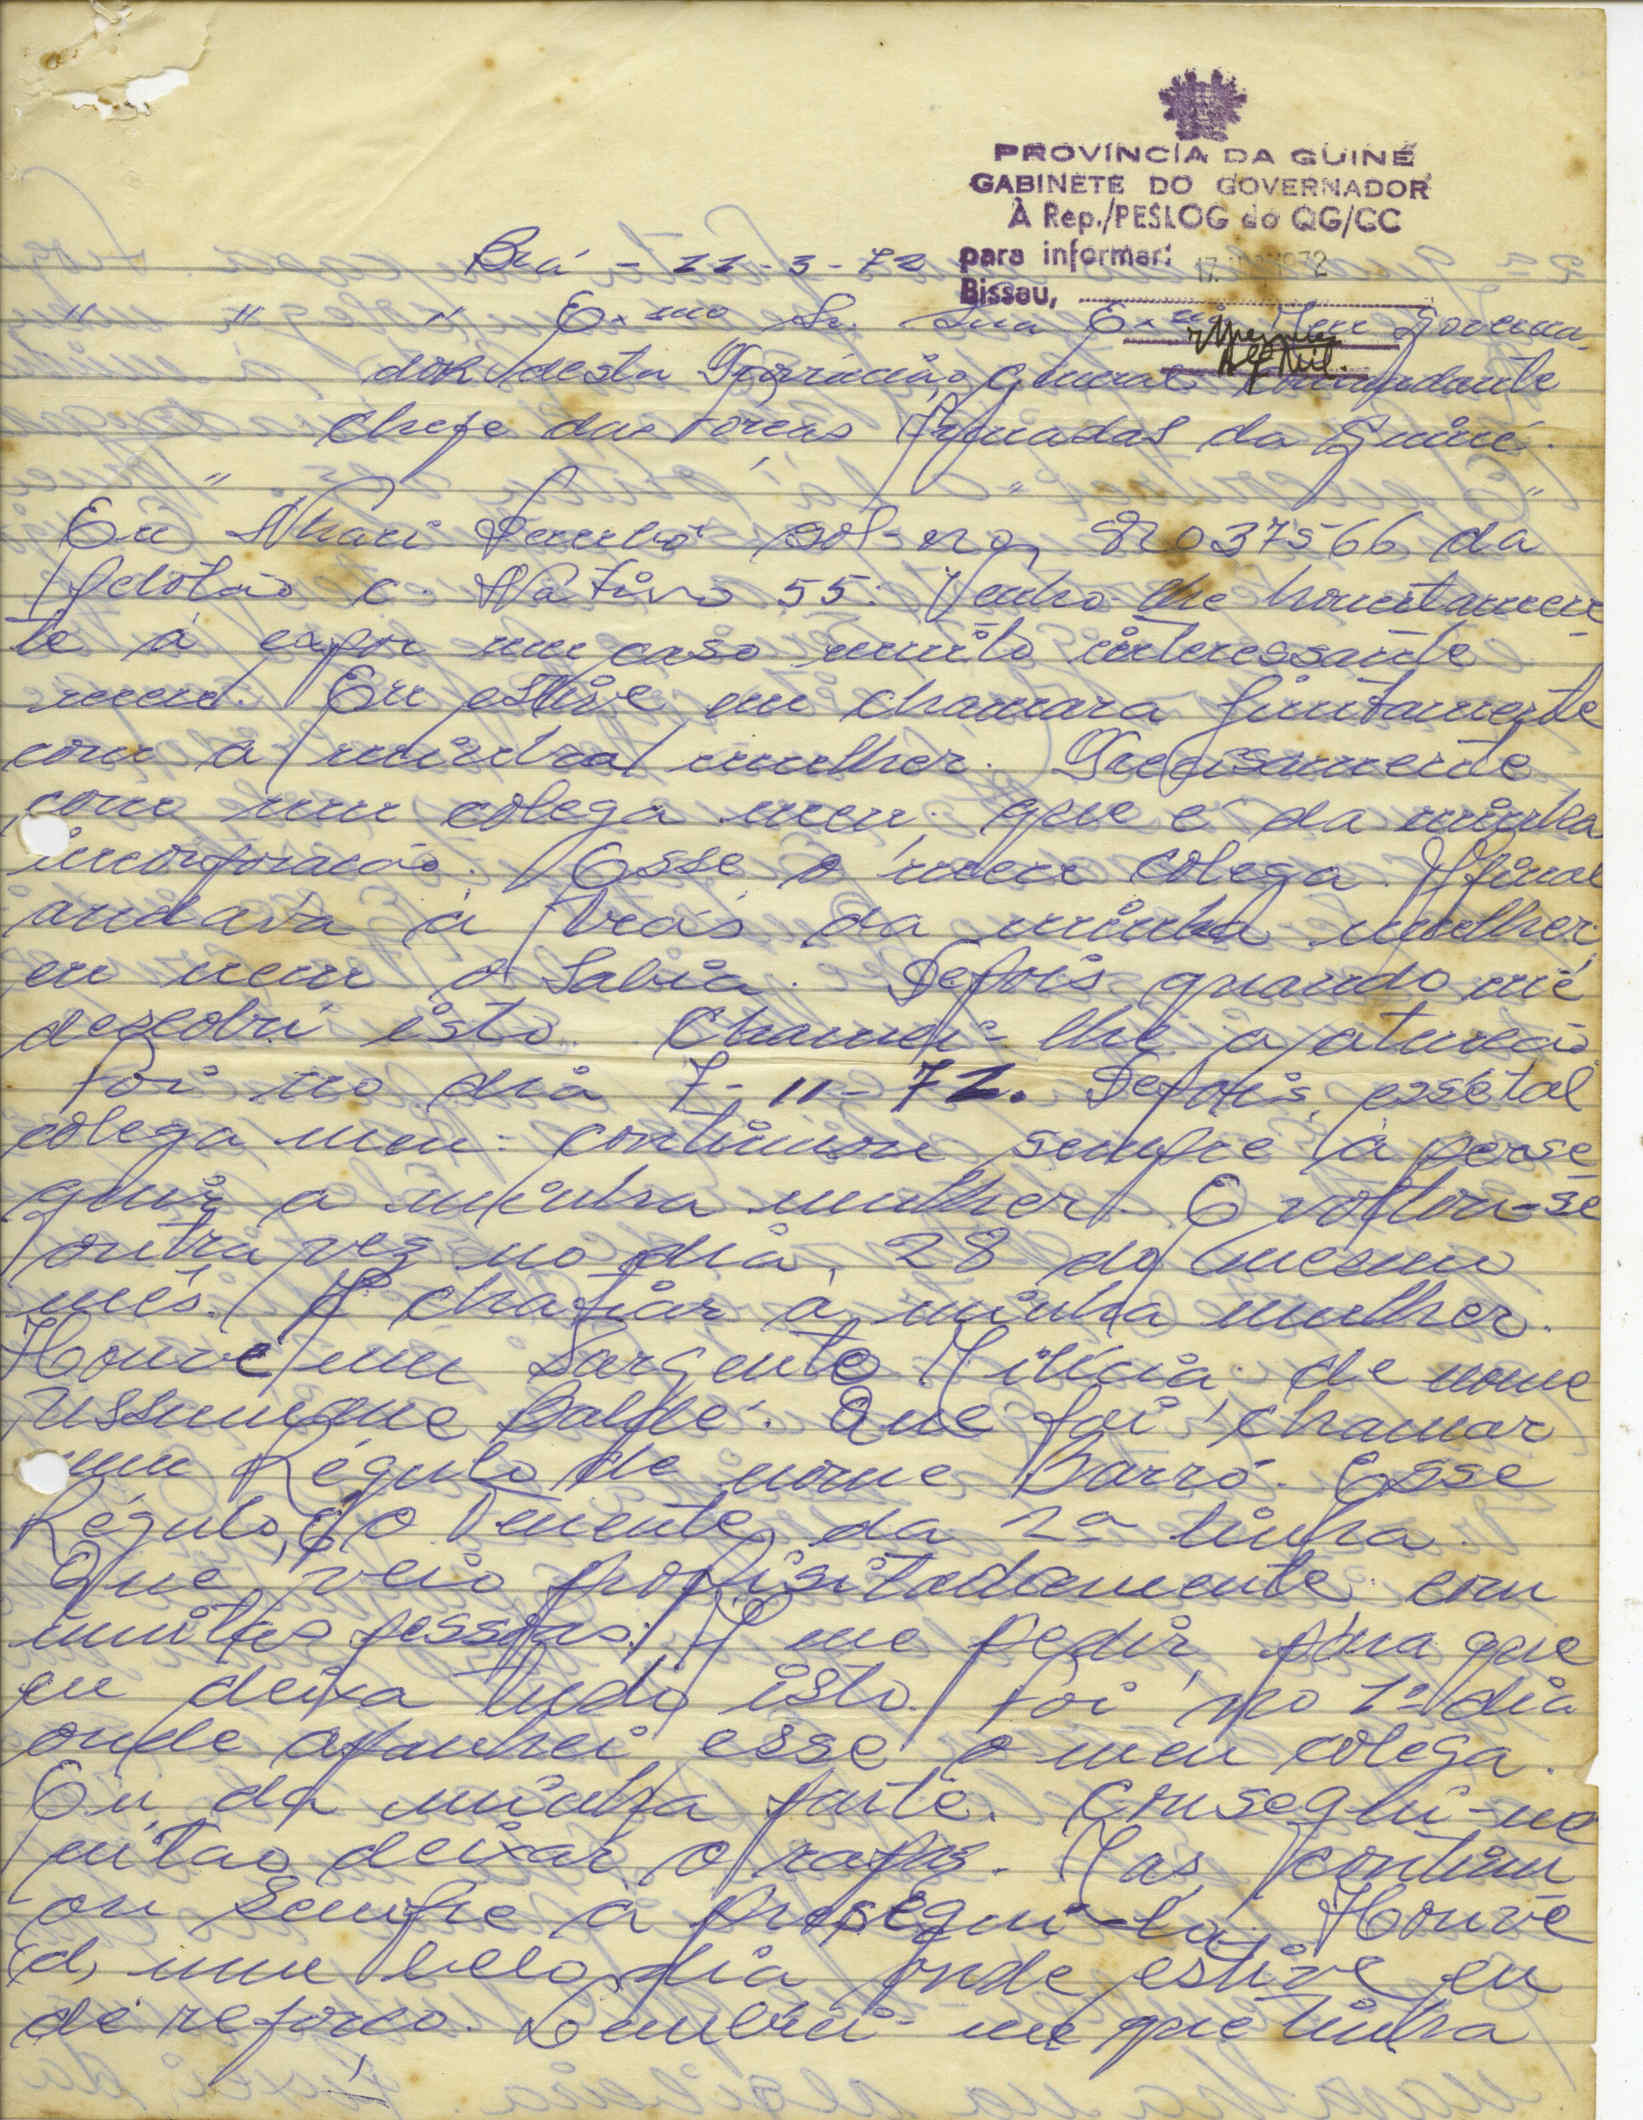 PROVÍNCIA DA GUINÉ
GABINETE DO GOVERNADOR
À Rep./PESLOG do QG/CC
para informar:
17. 1972
Bissau,
Brá - 11-3-72
" " " Exmo Sr. Sua Exma Meu Governa
dor desta Província, General Comandante
Chefe das Forças Armadas da Guiné.
" " "
Eu Nhari Sambú sol- no 82037566 da
Pelotão C. Nativo 55: Venho-me honestamen
te á expor um caso muito interessante
meu. Eu estive em Chamara juntamente
com a minha mulher. Precisamente
com um colega meu. que é da minha
incorporação. Esse o meu colega. Afinal
andava á trás da minha mulher
eu nem o sabia. Depois quando me
descobri isto. Chamei-lhe a atenção
Foi no dia 7-11-71. Depois esse tal
colega meu: continuou sempre á perse
guir a minha mulher. E voltou-se
outra vez no dia, 28 do mesmo
mês. A chatiar a minha mulher.
Houve um Sargento Milícia de nome
Ussumane Baldé. Que foi chamar
um Régulo de nome Barró. Esse
Régulo, é o Tenente da 2ª linha.
Que veio propisitadamente com
muitas pessoas: A me pedir para que
eu deixa tudo isto. Foi no 1º dia
onde apanhei esse o meu colega.
Eu da minha parte. Consegui-me
então deixar o rapaz. Mas continu
ou sempre á prosegui-la. Houve
d, um belo dia onde estive eu
de reforço. Lembrei-me que tinha